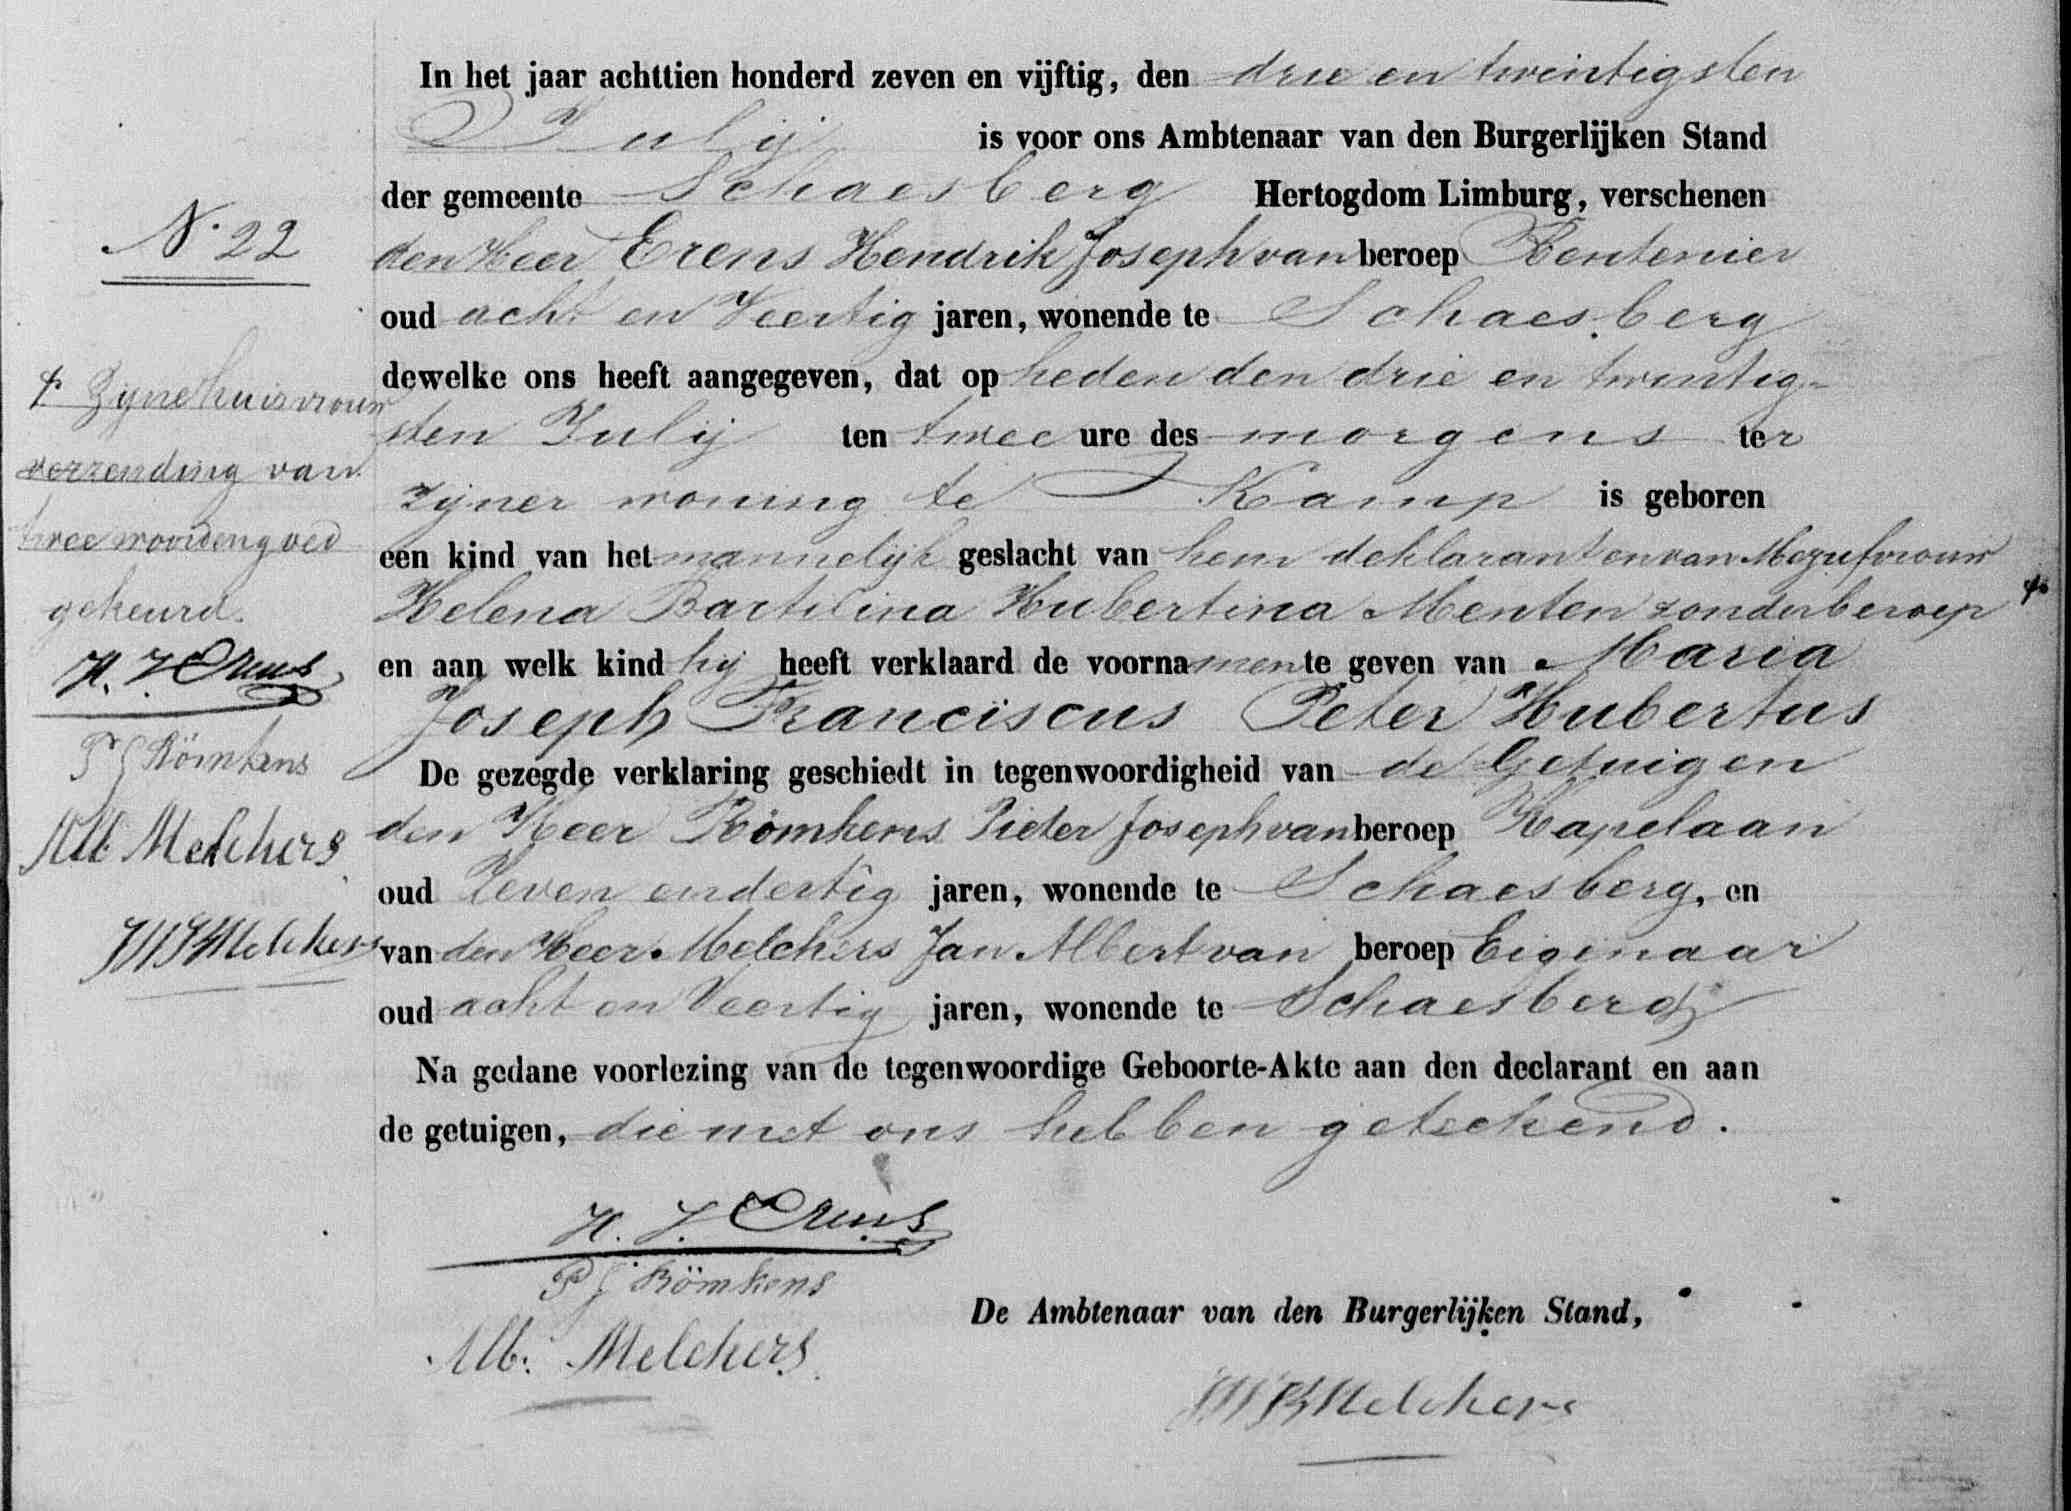 In het jaar achttien honderd zeven en vijftig, den drie en twintigsten
Julij is voor ons Ambtenaar van den Burgerlijken Stand
der gemeente Schaesberg Hertogdom Limburg, verschenen
den Heer Erens Hendrik Joseph van beroep Rentenier
oud acht en Veertig jaren, wonende te Schaesberg
dewelke ons heeft aangegeven, dat op heden den drie en twintig-
sten Julij ten twee ure des morgens ter
zijner woning te Kamp is geboren
een kind van het mannelijk geslacht van hem deklarant en van Mejufvrouw
Helena Hubertina Menten zonder beroep ⌿
en aan welk kind hij heeft verklaard de voornamen te geven van Maria
Joseph Franciscus Peter Hubertus
De gezegde verklaring geschiedt in tegenwoordigheid van de Getuigen
den Heer Römkens Pieter Joseph van beroep Kapelaan
oud Zeven en dertig jaren, wonende te Schaesberg, en
van den Heer Melchers Jan Albert van beroep Eigenaar
oud acht en Veertig jaren, wonende te Schaesberg
Na gedane voorlezing van de tegenwoordige Geboorte-Akte aan den declarant en aan
de getuigen, die met ons hebben geteekend.
H. J. Erens
P J Römkens
Alb. Melchers
De Ambtenaar van den Burgerlijken Stand,
Melchers
N. 22
⌿ Zijne huisvrouw
verzending van
twee woorden goed
gekeurd.
H. J. Erens
P J Römkens
Alb Melchers
Melchers